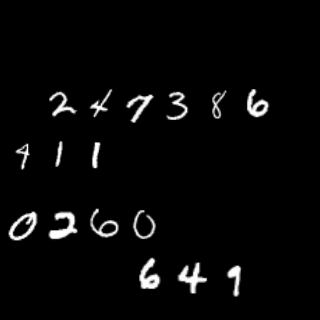 2 4 7 3 8 6
4 1 1
0 2 6 0
6 4 9